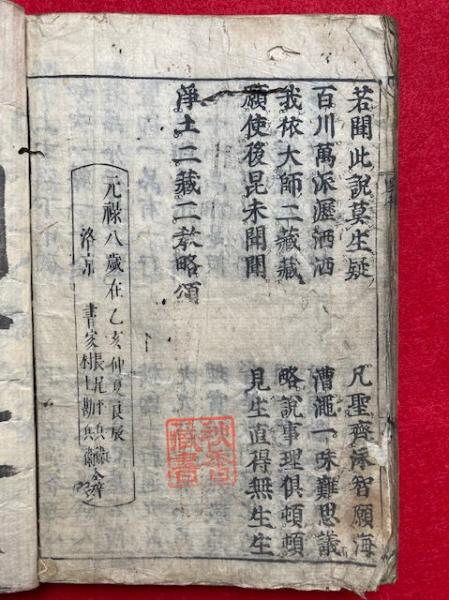 若聞此説莫生疑 凡聖齊添智願海
百川萬派瀝洒洒 漕澠一味難思議
我依大師二藏藏 略説事理俱頓頓
願使後昆未聞聞 見生直得無生生
淨土二藏二教略頌
元祿八歲在乙亥仲夏良辰
洛京 書家
長尾平兵衞
村上勘兵衞
藏書